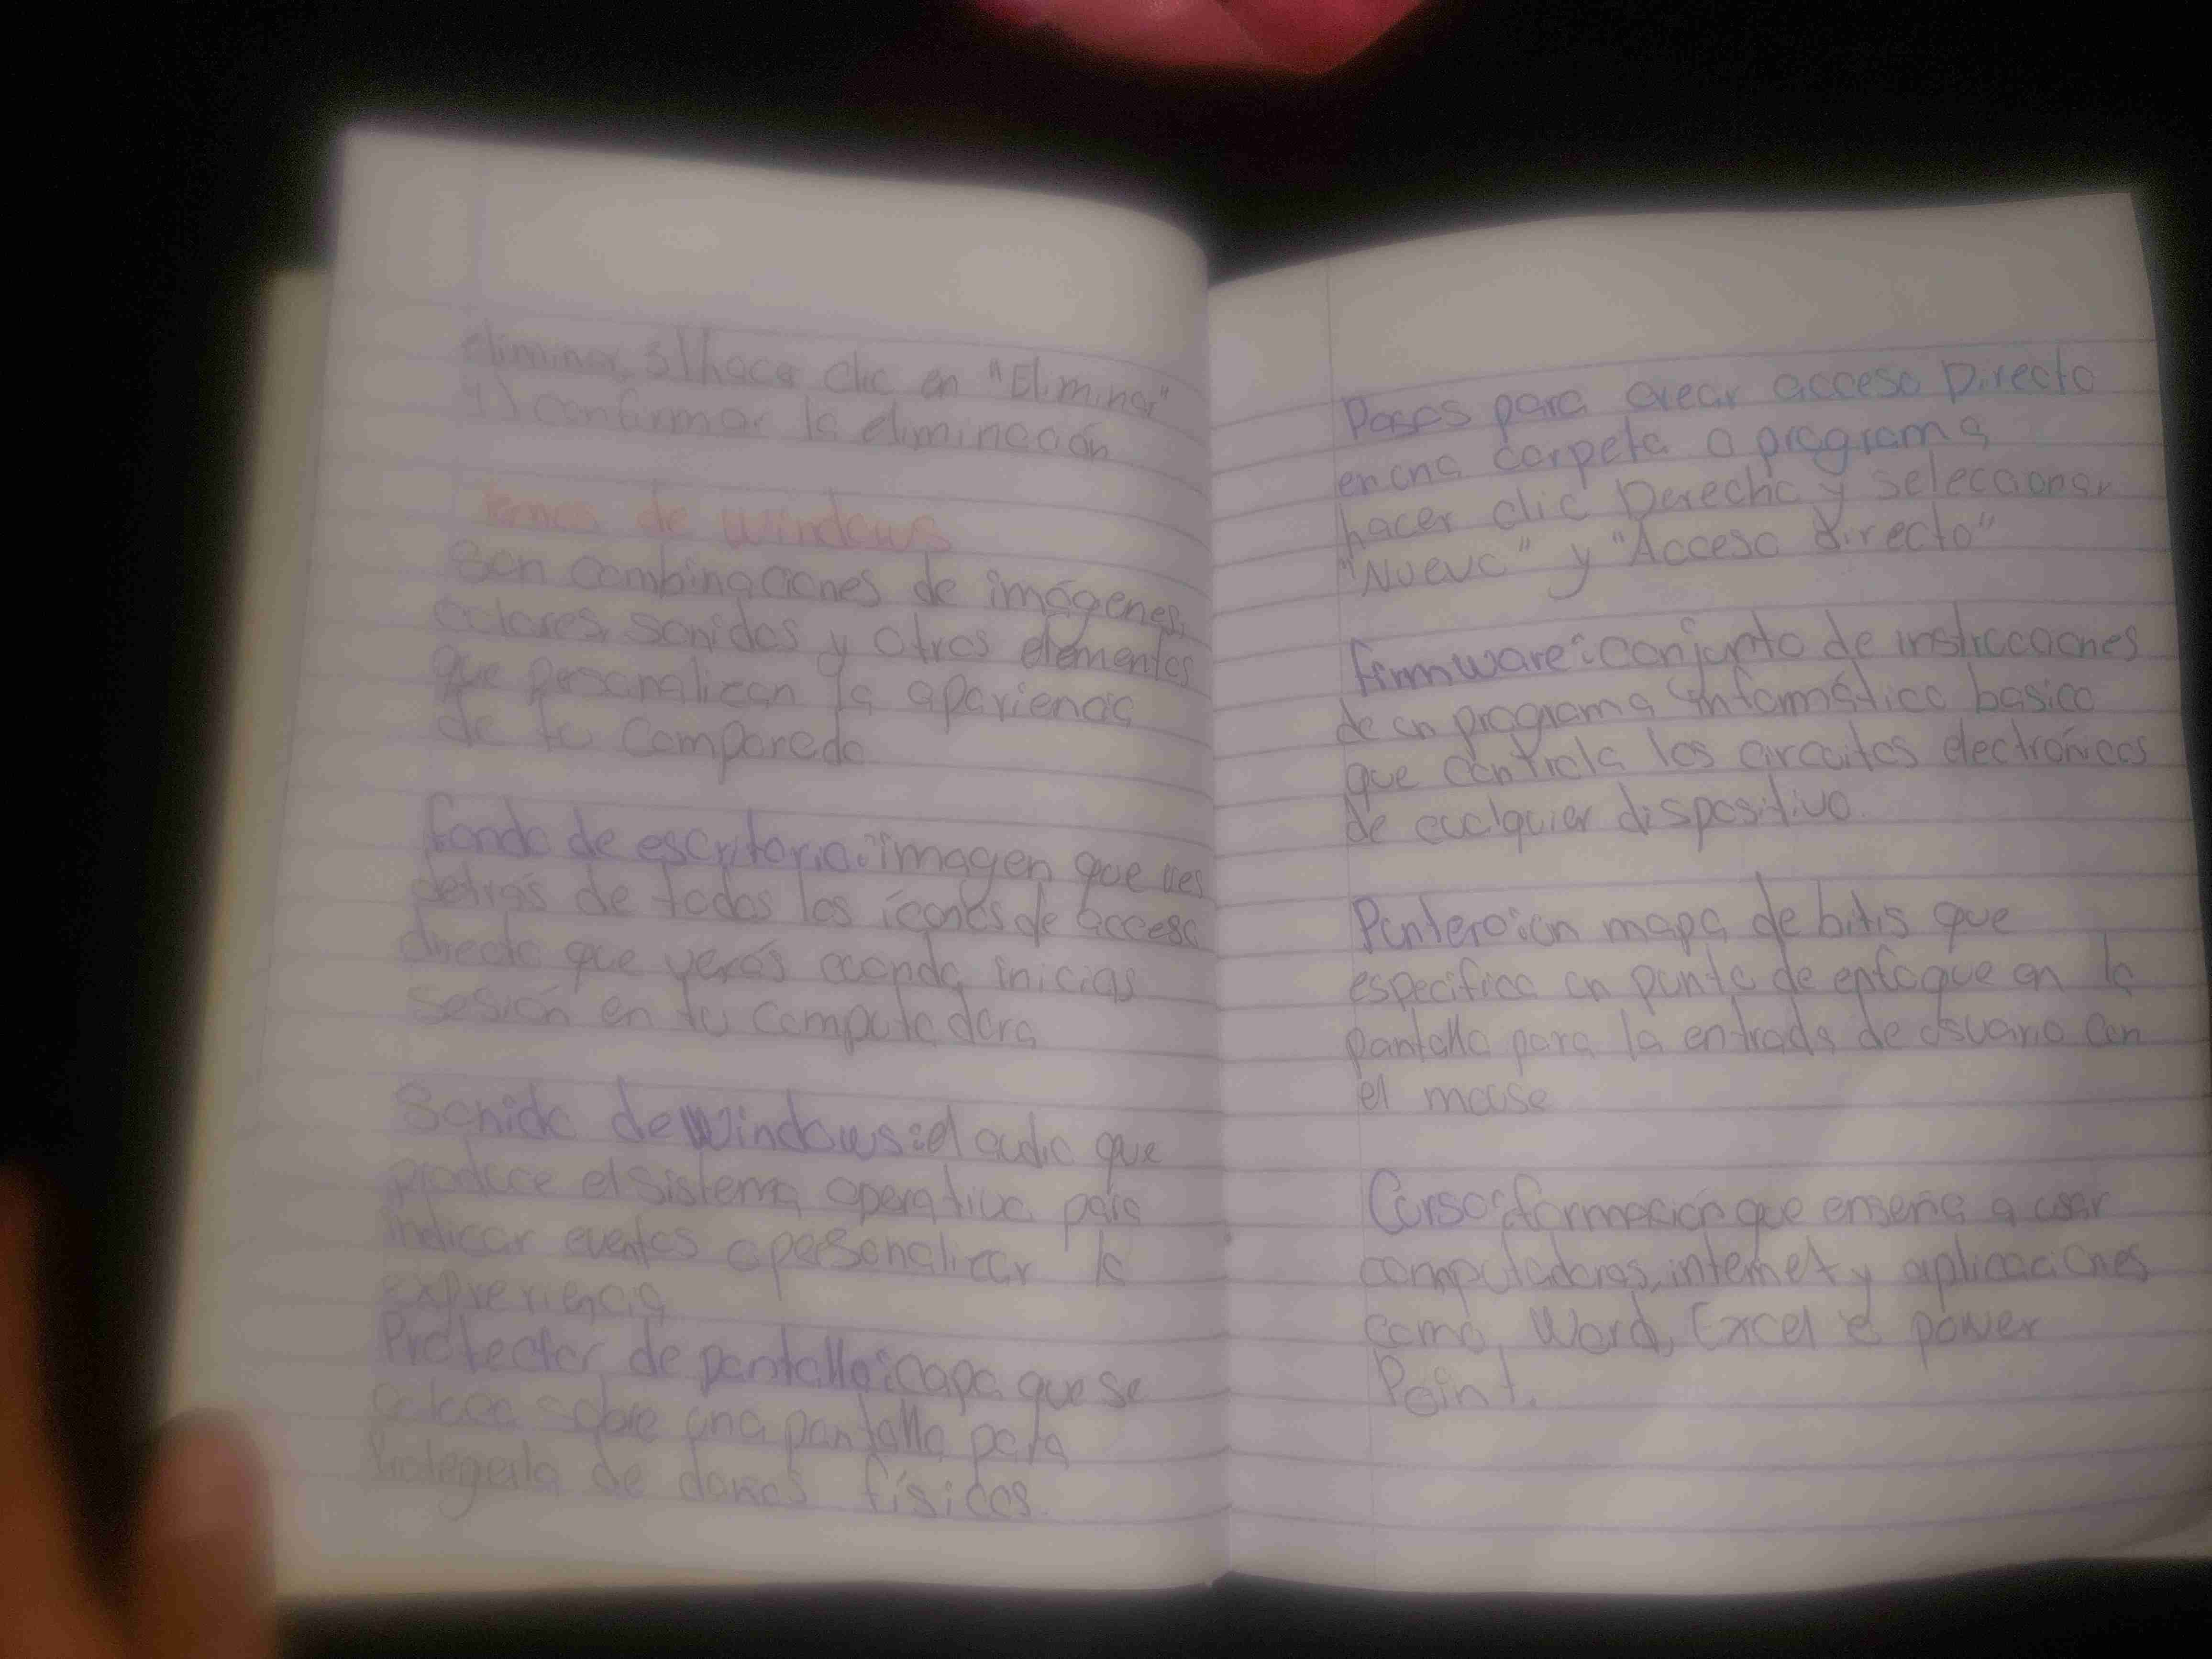 eliminar, 3) hacer clic en "Eliminar"
4) confirmar la eliminación
temas de windows
Son combinaciones de imágenes,
colores, sonidos y otros elementos
que pesonalizan la apariencia
de tu
fondo de escritorio: imagen que ves
detrás de todos los íconos de acceso
directo que verás cuando inicias
sesión en tu computadora
Sonido de windows: el audio que
produce el sistema operativo para
indicar eventos o personalizar la
expreriencia
Protector de pantalla: capa que se
coloca sobre una pantalla para
Protegerla de daños físicos.
Pasos para crear acceso Directo
en una carpeta o programa
hacer clic Derecho y seleccionar
"Nuevo" y "Acceso directo"
firmware: conjunto de instrucciones
de un programa informático basico
que controla los circuitos electrónicos
de cualquier dispositivo
Puntero: un mapa de bitis que
especifica un punto de enfoque en la
pantalla para la entrada de usuario con
el mouse
Curso: formación que enseña a usar
computadoras, internet y aplicaciones
como Word, Excel e power
Point.